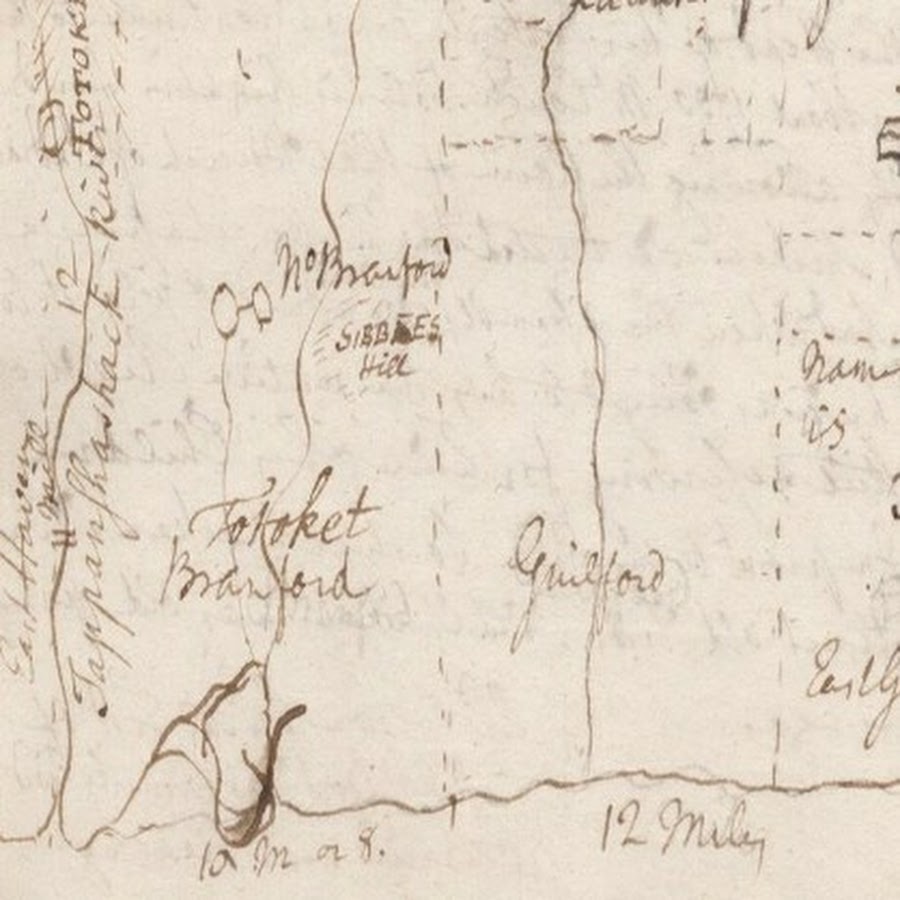 TOTOK
Riv
12
Tappanshashack
East Haven
No Branford
SIBBIES
Hill
Nam
is
Totoket
Branford
Guilford
East G
10 M or 8.
12 Miles